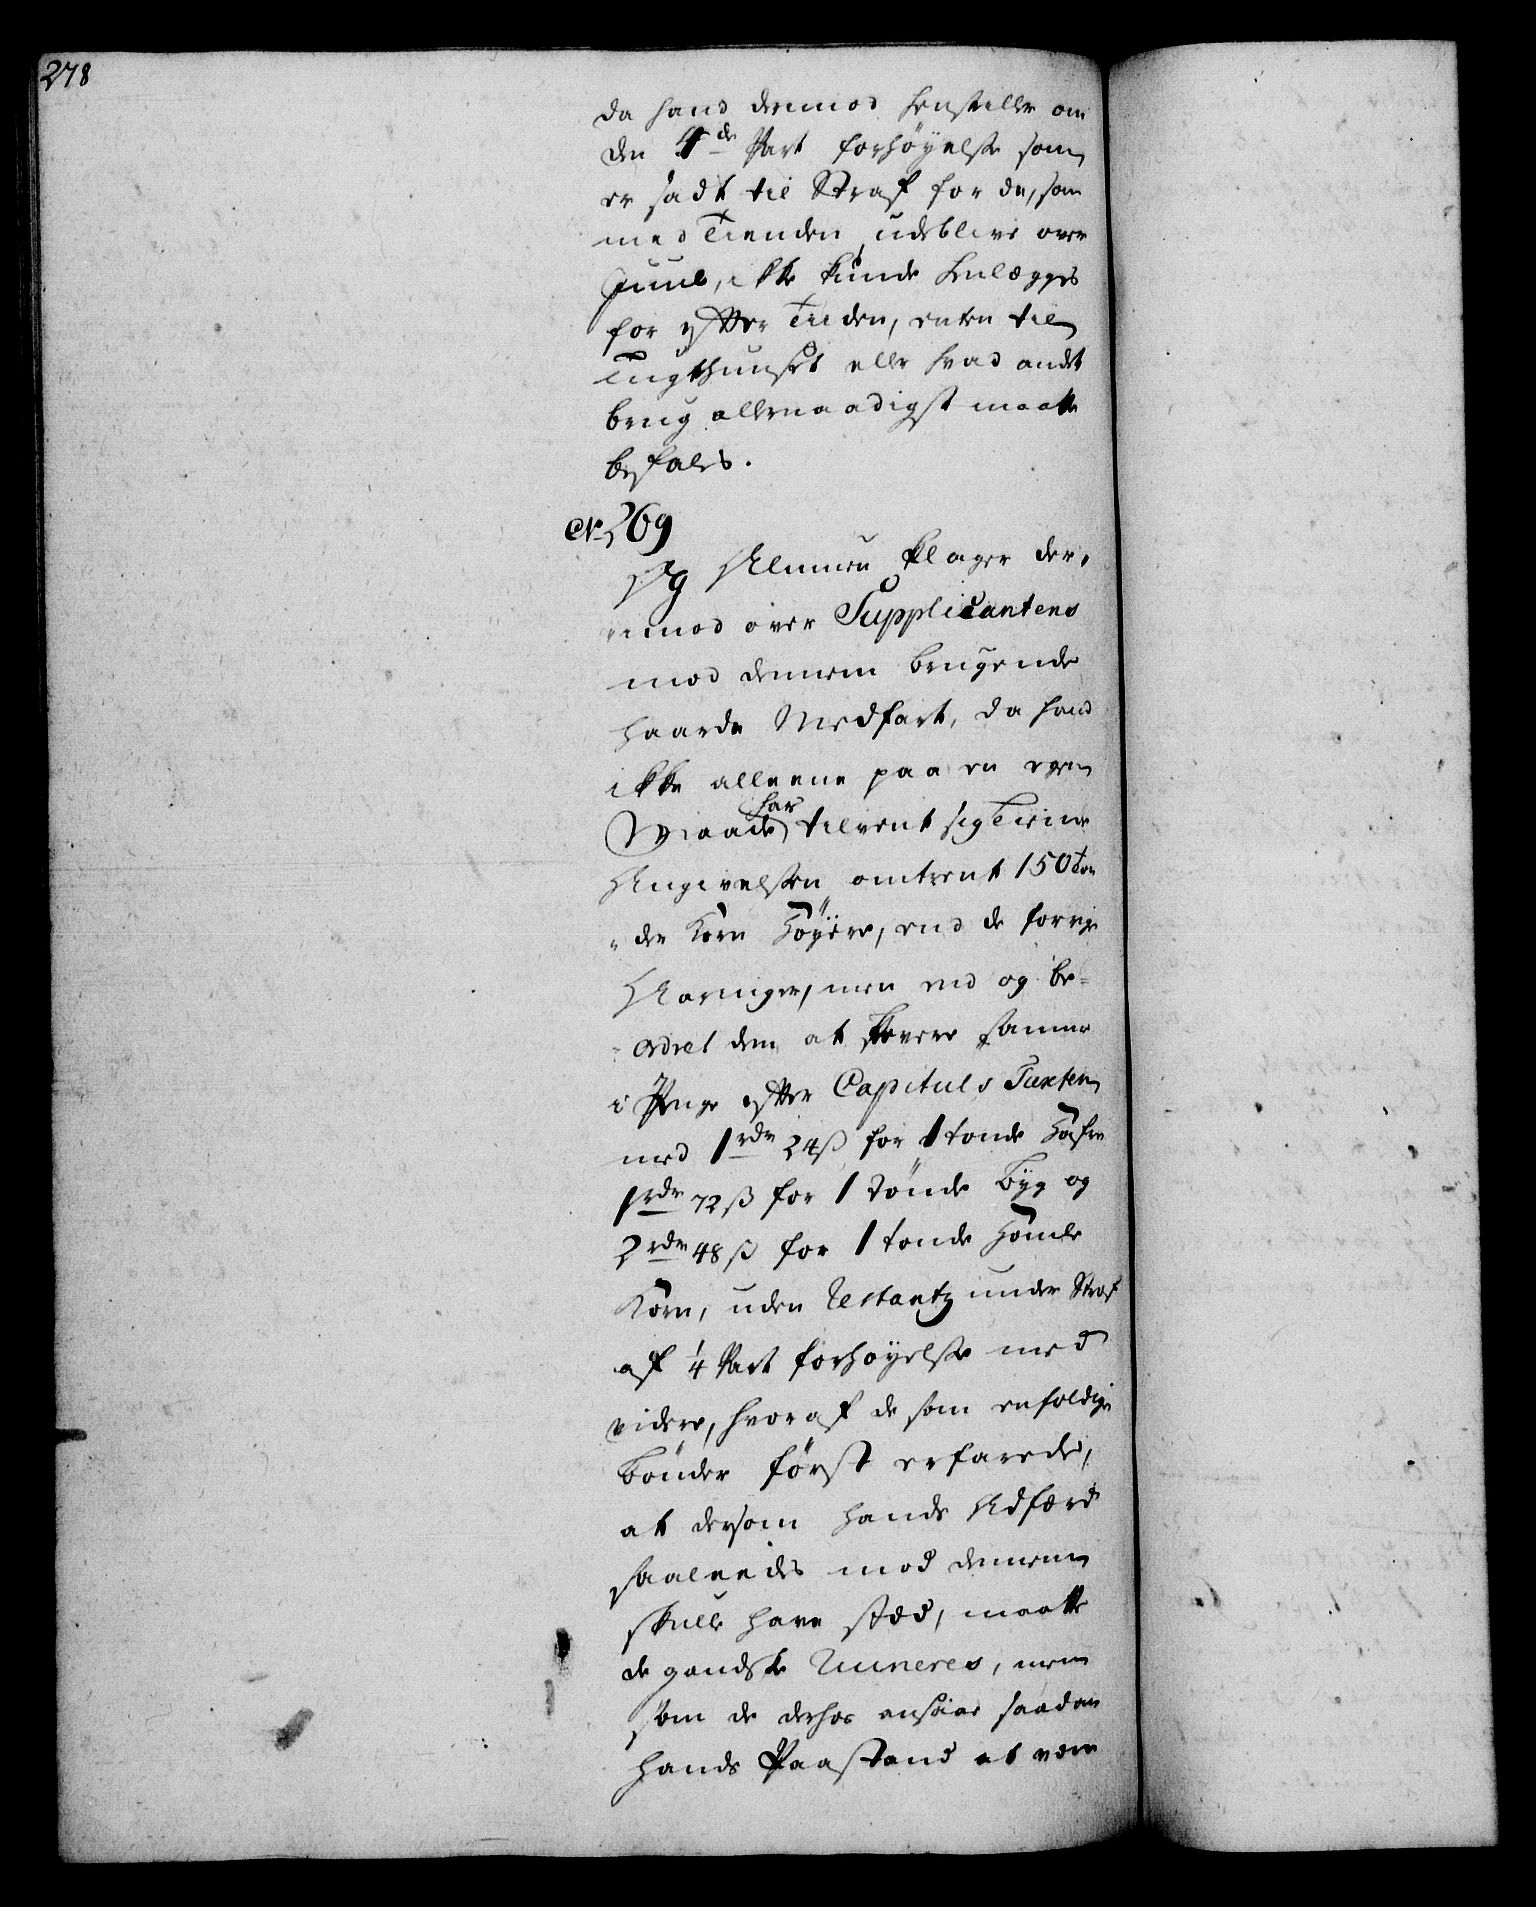 278
da hand derimod henstiller om
den 4de Part forhøyelse som
er sadt til Straf for de, som
med Tienden udeblive over
Juul, ikke kunde henlægges
for efter Tiiden, enten til
Tugthuuset eller hvad andet
brug allernaadigst maatte
befales.
No 269
Almuen klager der„
imod over Supplicantens
mod dennem brugende
haarde Medfart, da hand
ikke alleene paa en egen
Maade har tilvent sig Tiende
Angivelsen omtrent 150 tøn
„der Korn høyere, end de forrige
Aaringer, men end og be„
„ordret dem at levere samme
i Penge efter Capituls Taxten
med 1 rdr 24 ß for 1 tønde Hafre
1 rdr 72 ß for 1 tønde Byg og
2 rdr 48 ß for 1 tønde Hømle
Korn, uden Restantz under Straf
af 1/4 Part forhøyelse med
videre, hvoraf de som enfoldige
bønder først erfarede,
at dersom hands Adfærd
saaleedes mod dennem
skulle have stæd, maatte
de gandske Ruineres, men
som de derhos ansaae saadan
hands Paastand at være